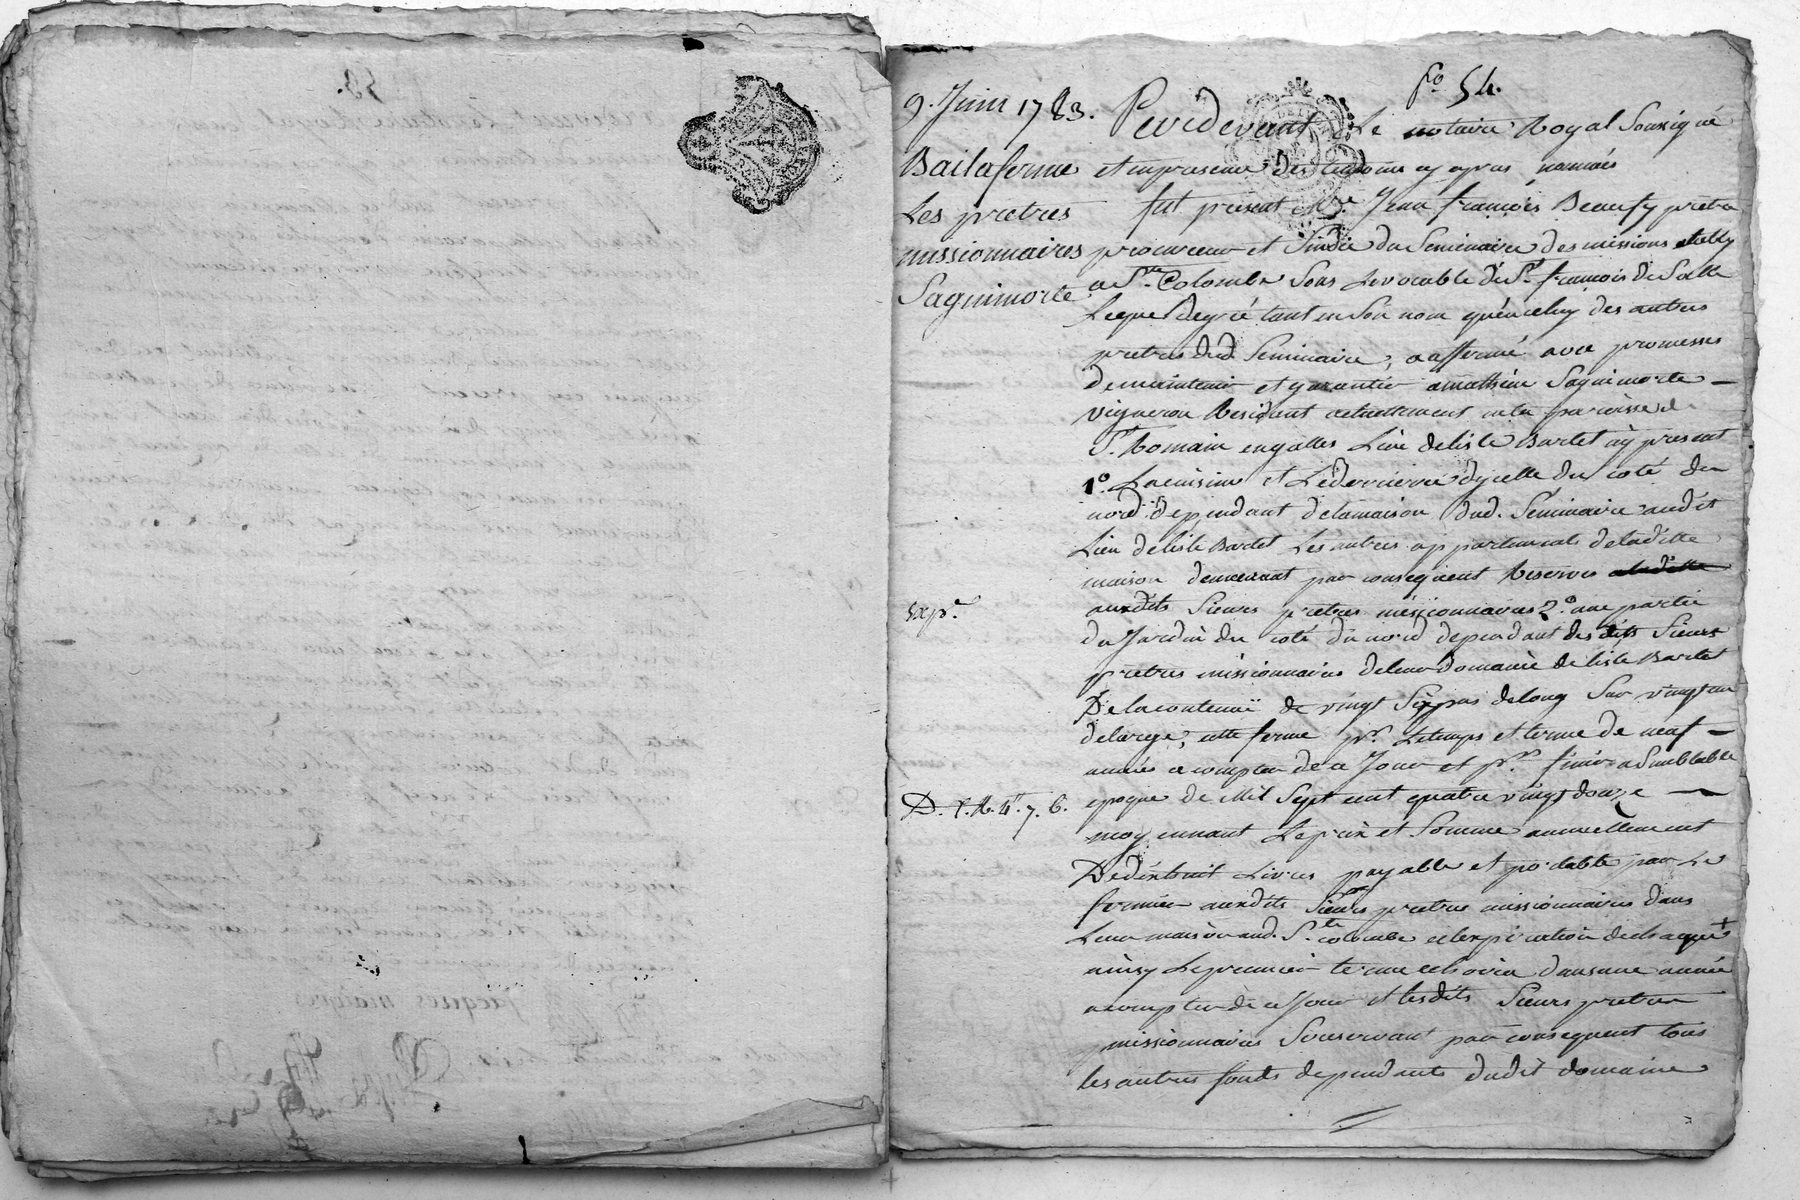 fo. 54.
9. Juin 1783.
Bail a ferme
Les pretres
missionnaires
Saquimorte
Expe.
Pardevant Le notaire Royal Sousigné
et en presence des temoins cy apres nommés
fut présent Mre. Jean françois Beaufy pretre
procureur et Sindic du Seminaire des missions etably
a Ste. Colombe Sous Le vocable de St. françois de Salle
Lequel de gré tant en Son nom qu'en celuy des autres
pretres dud. Seminaire, a affermé avec promesses
de maintenir et garantir a mathieu Saquimorte
vigneron Résidant actuellement en la paroisse de
St. Romain en galles Lieu de lisle Barlet icy présent
1o. La cuisine et Le derrierre d'ycelle du coté du
nord dependant de la maison dud. Séminaire audit
Lieu de lisle Barlet Les autres appartements de la ditte
maison demeurant par conséquent Réservés
auxdits Sieurs prêtres missionnaires 2o. une partie
du Jardin du coté du nord dependant desdits Sieurs
pretres missionnaires de leur domaine de lisle Barlet
De la contenue de vingt Six pas de long Sur vingt un
de large, cette ferme pr. Le temps et terme de neuf
années a compter de ce Jour et pr. finir a Semblable
epoque de Mil Sept cent quatre vingt douze
moyennant Le prix et Somme annuellement
De dixhuit Livres payable et portable par Le
fermier auxdits Sieurs pretres missionnaires dans
Leur maison aud. Ste. colombe a l'expiration de chaque +
ainsy Le premier terme echoira dans une année
a compter de ce Jour et lesdits Sieurs pretres
missionnaires Se réservant par consequent tous
les autres fonds dependants dudit domaine